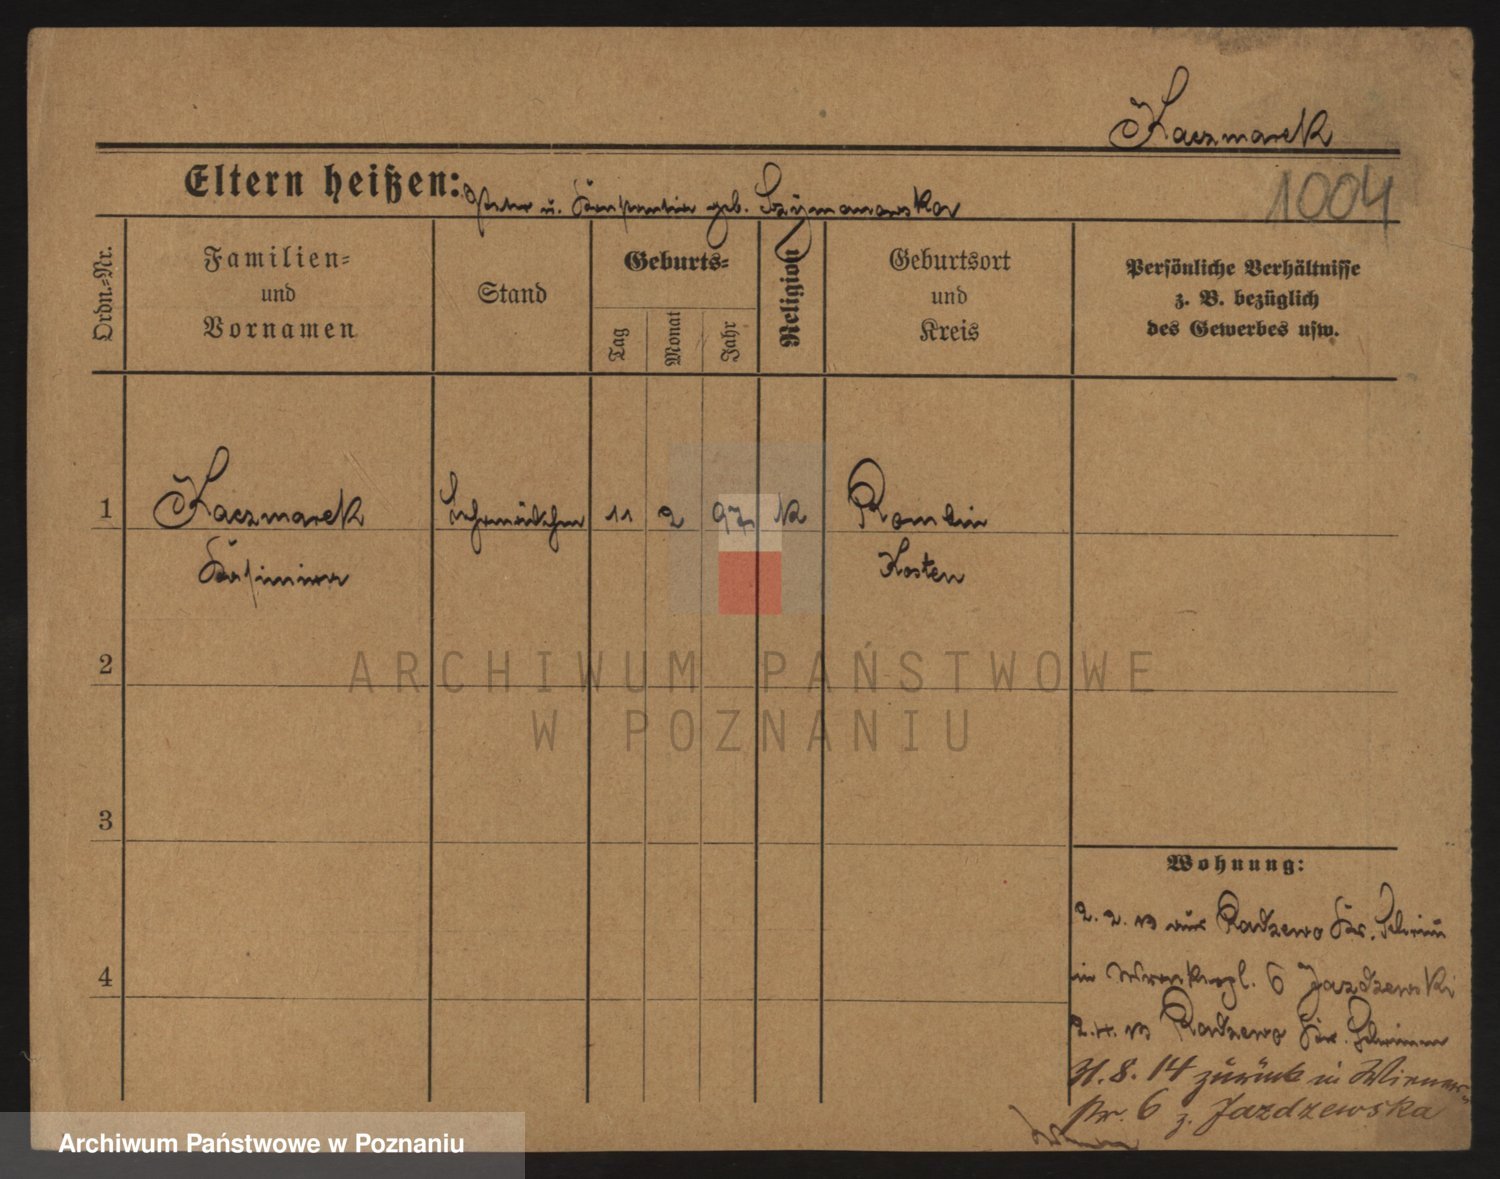 Kaczmarek
Eltern heißen: Peter u. Konstantia geb. Szÿmanowska
1004
Ordn.-Nr.
Familien-
und
Vornamen
Stand
Geburts-
Tag
Monat
Jahr
Religion
Geburtsort
und
Kreis
Persönliche Verhältnisse
z. B. bezüglich
des Gewerbes usw.
1 Kaczmarek Lehrmädchen 11 2 97 K Rombin
Kasimira Kosten
2
ARCHIWUM PAŃSTWOWE
W POZNANIU
3
Wohnung:
2. 2. 13 aus Radzewo Kr. Schrimm
in 6 Jazdzewski
4
2.4.13 Radzewo Kr. Schrimm
31.8.14 zurück in Wiener-
str. 6 z. Jazdzewska
Archiwum Państwowe w Poznaniu